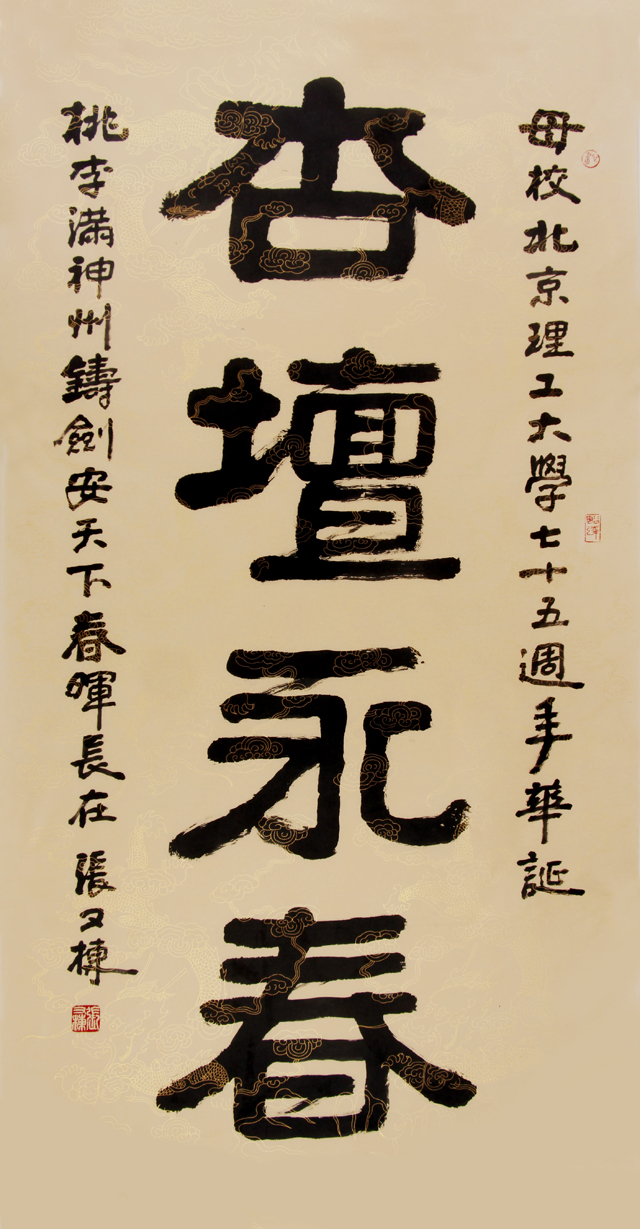 母校北京理工大學七十五週年華誕
杏壇永春
桃李滿神州鑄劍安天下春暉長在 張又棟